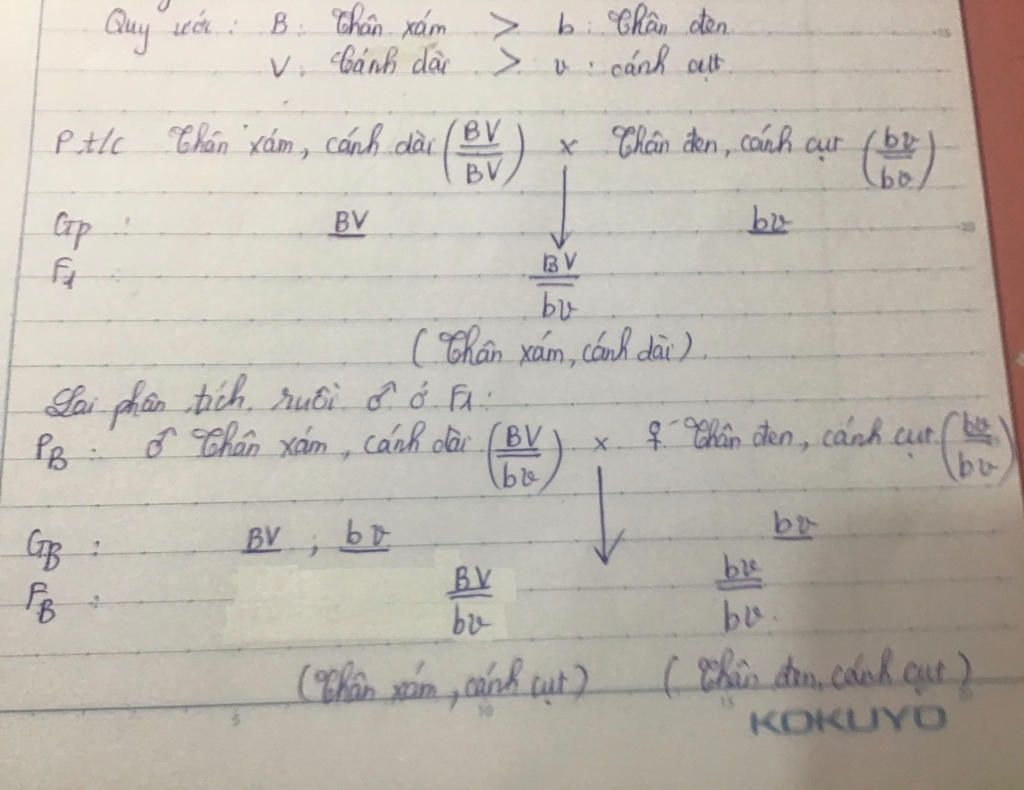 Quy ước : B : Thân xám > b : Thân đen
V : Cánh dài > v : cánh cụt.
P t/c Thân xám, cánh dài (BV/BV) x Thân đen, cánh cụt (bv/bv)
Gp : BV bv
F1 BV/bv
(Thân xám, cánh dài).
Lai phân tích ruồi ♂ ở F1 :
PB : ♂ Thân xám, cánh dài (BV/bv) x ♀ Thân đen, cánh cụt (bv/bv)
GB : BV ; bv bv
FB : BV/bv bv/bv.
(Thân xám, cánh cụt) (Thân đen, cánh cụt)
5 10 15
KOKUYO